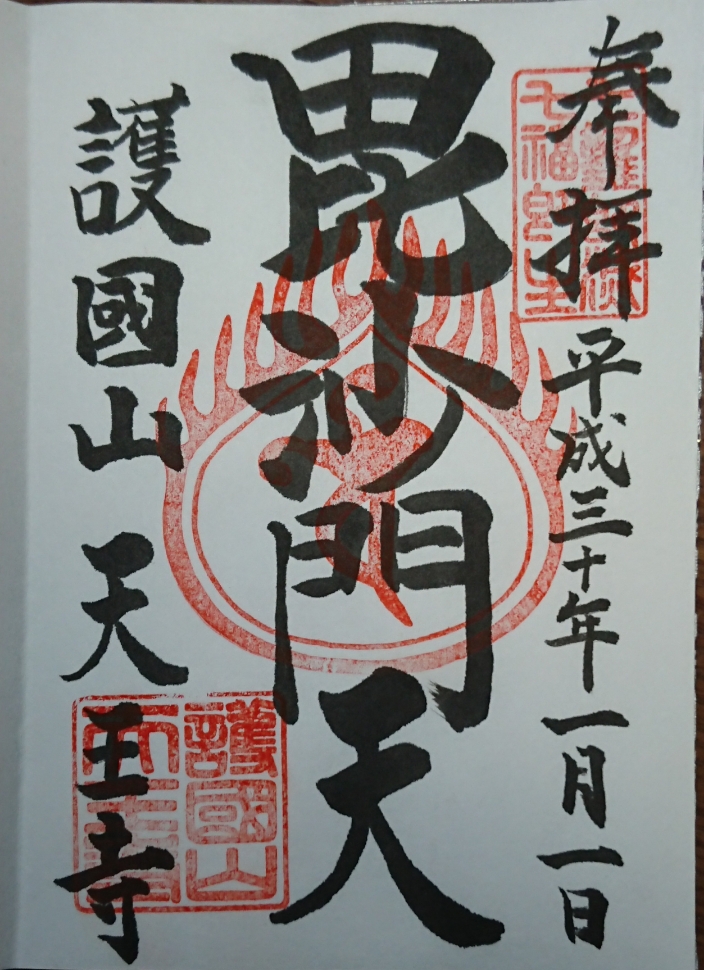 奉拝 平成三十年一月一日
毘沙門天
護國山 天王寺
護國山
天王寺